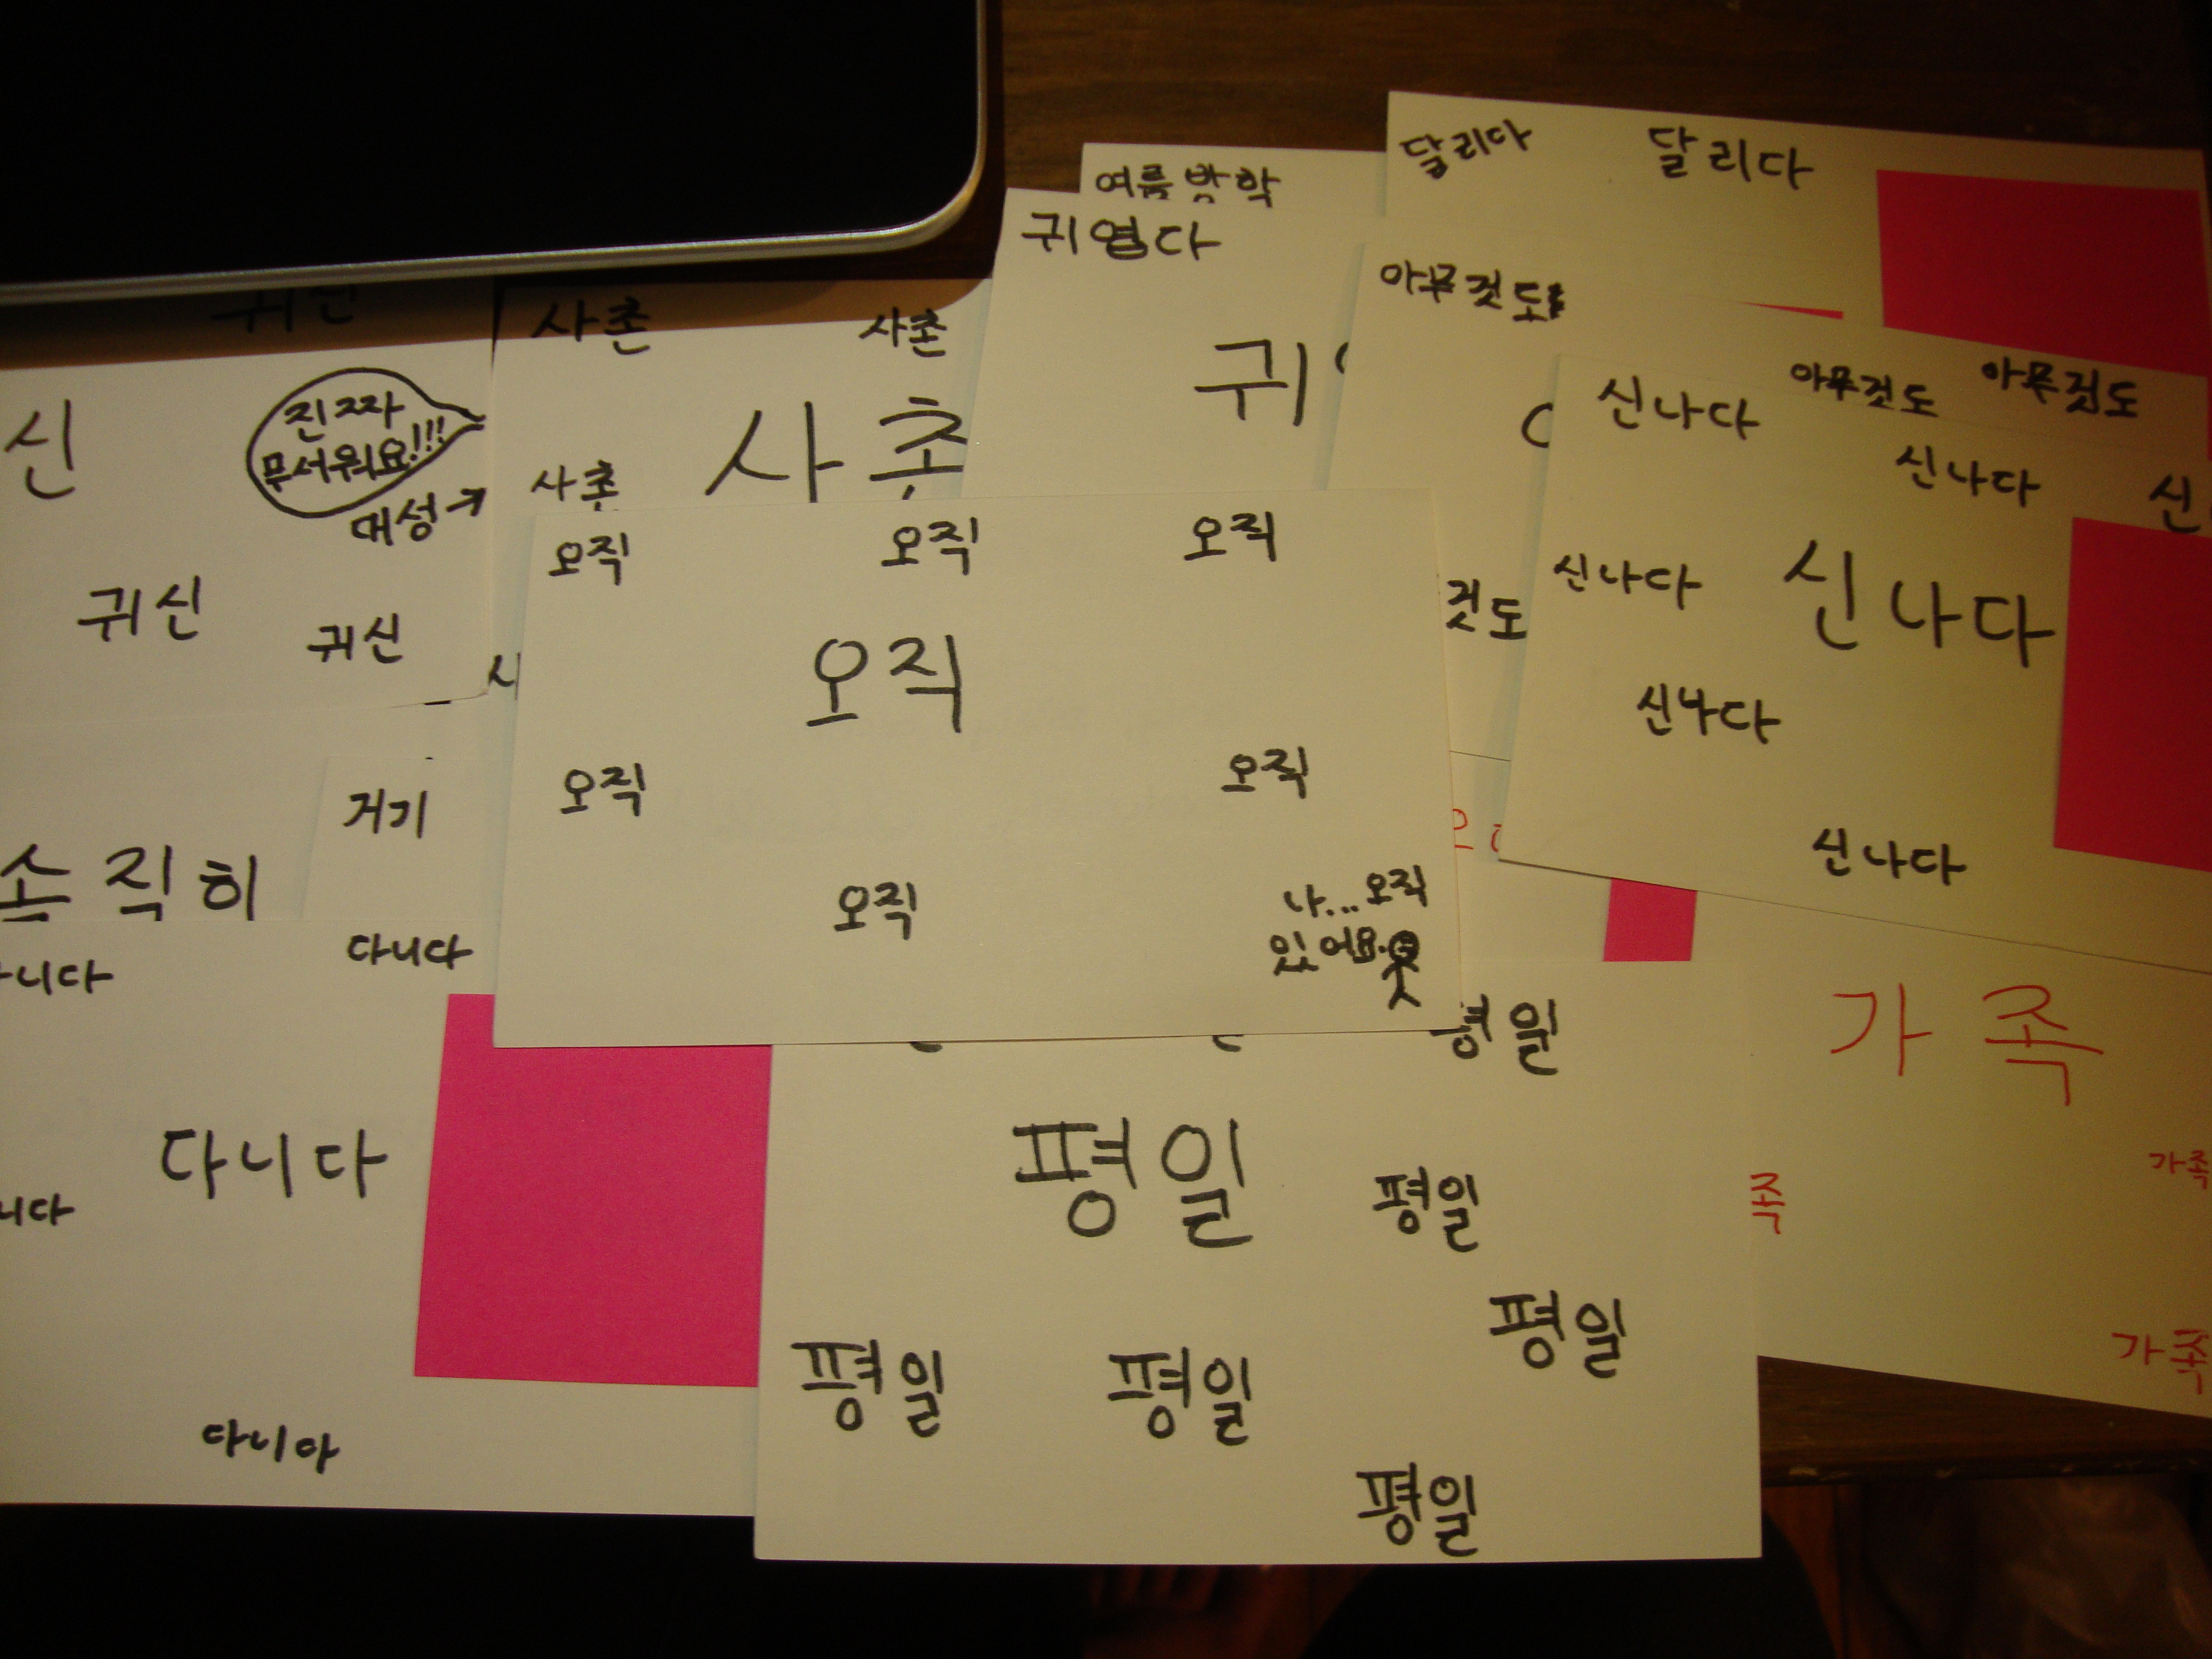 달리다 달리다
여름방학
귀엽다
아무것도
귀신
사촌 사촌
귀
아무것도 아무것도
신나다
신나다
신
신
진짜
무서워요!!!
대성→
사촌
사촌
오직 오직 오직
귀신
귀신
것도
신나다
신나다
오직
신나다
오직
오직
거기
솔직히
신나다
오직
나... 오직
있어요.
다니다
니다
평일
가족
다니다
니다
평일
평일
족
가족
평일
평일
평일
가족
다니다
평일